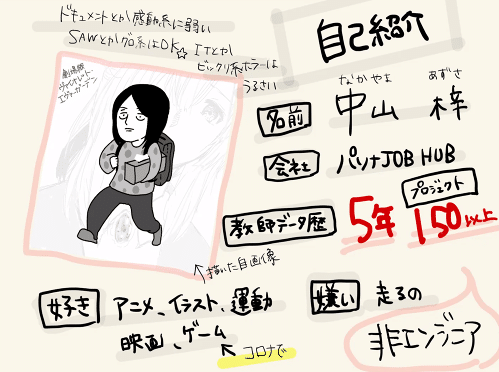 ドキュメントとか感動系に弱い
SAWとかグロ系はOK☆ ITとか
ビックリ系ホラーは
うるさい
自己紹介
劇場版
ヴァイオレット
エヴァーガーデン
なかやま あずさ
名前 中山 梓
会社 パソナJOB HUB
教師データ歴 5年 プロジェクト 150以上
↑描いた自画像
好き アニメ、イラスト、運動
映画、ゲーム
↖ コロナで
嫌い 走るの
非エンジニア